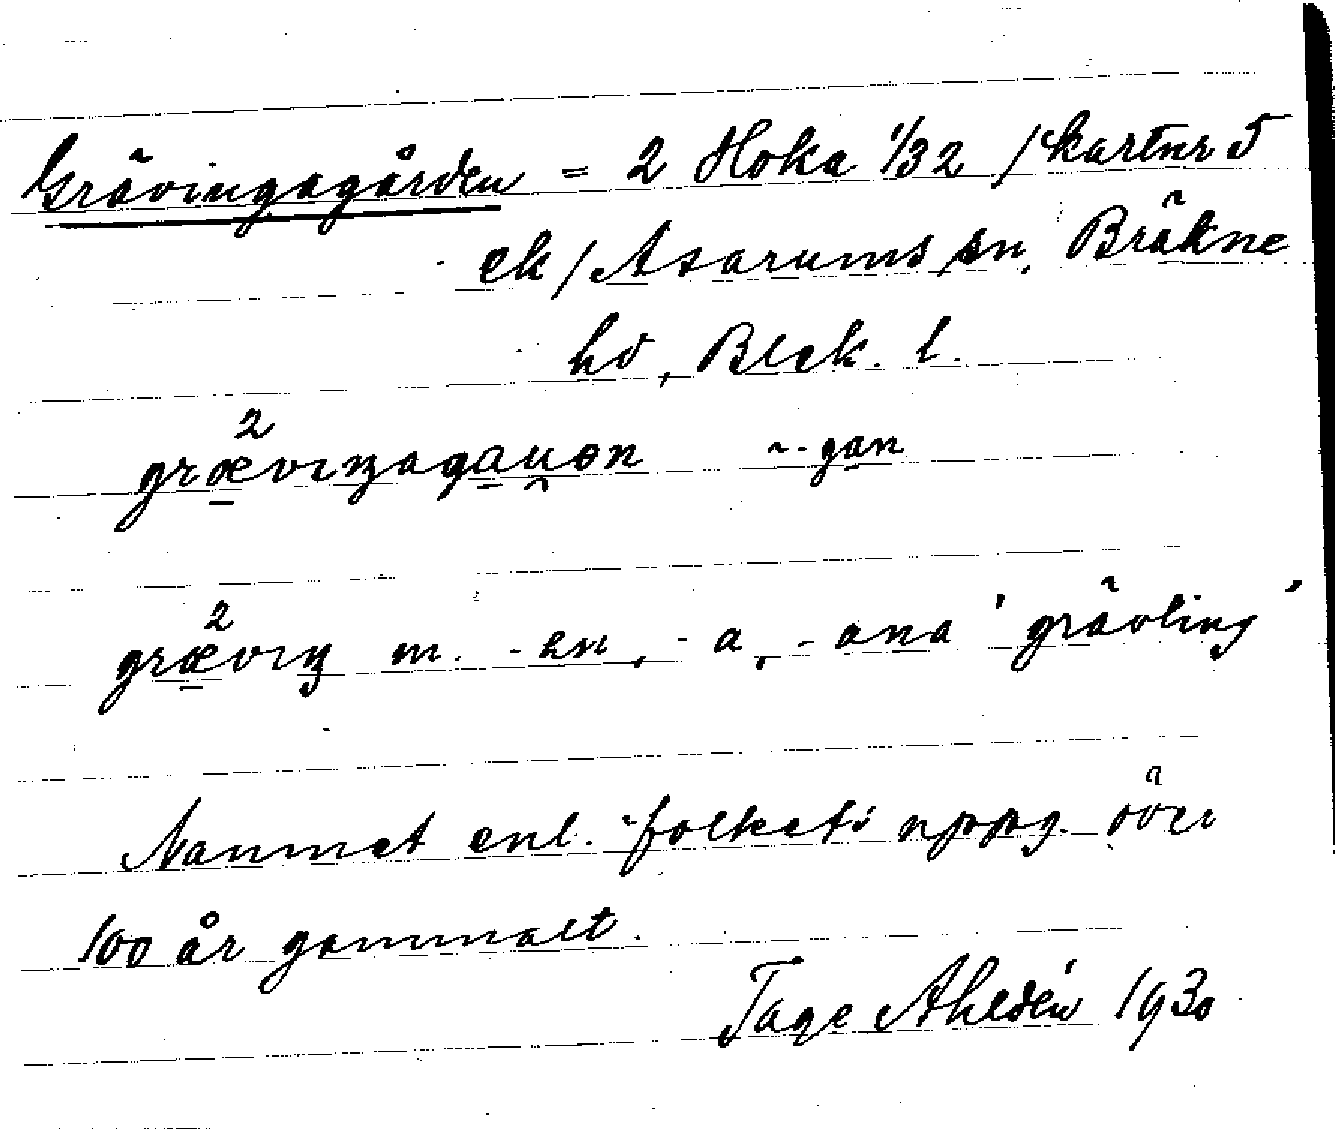 Grävingagården = 2 Hoka 1/32 /kartnr 5
ek/ Asarums sn, Bräkne
hd, Blek. l.
grævıŋagau̯ən ~-gan
grævıŋ m. -en, -a, -ana 'grävling'
Namnet enl. folkets uppg. över
100 år gammalt.
Tage Ahldén 1930